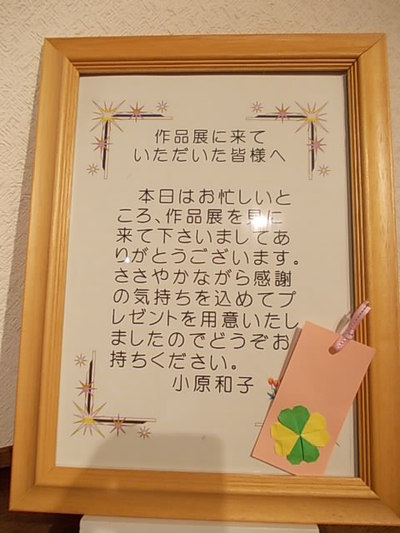 作品展に来て
いただいた皆様へ
本日はお忙しいと
ころ、作品展を見に
来て下さいましてあ
りがとうございます。
ささやかながら感謝
の気持ちを込めてプ
レゼントを用意いたし
ましたのでどうぞお
持ちください。
小原和子